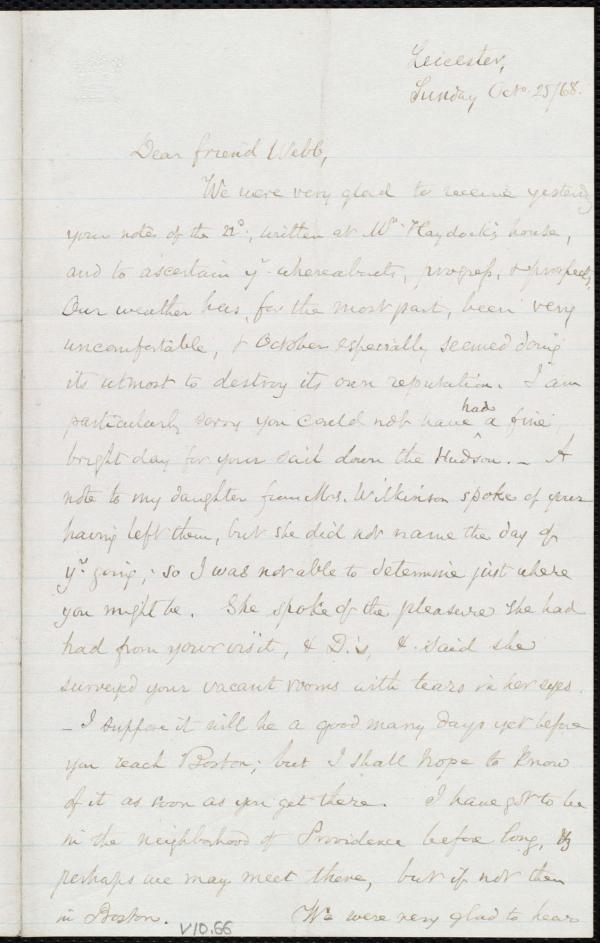 Leicester,
Sunday Octo. 25/68.
Dear friend Webb,
We were very glad to receive yesterday
your notes of the 22d., written at Mr. Haydock's house,
and to ascertain yr. whereabouts, progress, & prospects.
Our weather has, for the most part, been very
uncomfortable, & October especially seemed doing
its utmost to destroy its own reputation. I am
particularly sorry you could not have had a fine,
bright day for your sail down the Hudson. – A
note to my daughter from Mrs. Wilkinson spoke of your
having left them, but she did not name the day of
yr. going; so I was not able to determine just where
you might be. She spoke of the pleasure she had
had from your visit, & D.'s, & said she
surveyed your vacant rooms with tears in her eyes.
– I suppose it will be a good many days yet before
you reach Boston; but I shall hope to know
of it as soon as you get there. I have got to be
in the neighborhood of Providence before long, &
perhaps we may meet there, but if not then
in Boston. We were very glad to hear
V10.66